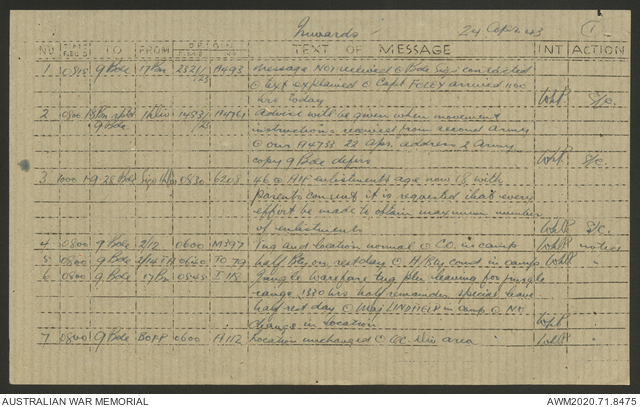 Inwards 24 Apr 43 1
NO TIME REC'D TO FROM ORIGIN TEXT OF MESSAGE INT ACTION
1 0815 9 Bde 17 Bn 2321/23 A493 message not received @ Bde Sigs contacted
@ text explained @ Capt arrived 1100
hrs today WHP S/C.
2 0800 18 Bn rptd 1 Div 1453/23 A4761 Advice will be given when movement
9 Bde instructions received from second Army
@ our A4753 22 Apr. address 2 Army
copy 9 Bde WHP S/C.
3 1000 1-9-28 Bde 0830 6208 46 @ AIF enlistments age now 18 with
Parents consent it is requested that every
effort be made to obtain maximum number
of enlistments WHP S/C
4 0800 9 Bde 2/12 0600 M397 Tng and location normal @ C.O. in camp WHP notice
5 0800 9 Bde 2/14 0640 TO 79 half Bty on rest day @ H/Bty comd in camp WHP "
6 0800 9 Bde 17 Bn 0545 I 118 Jungle warfare tng pln leaving for jungle
range 1330 hrs half remainder special leave
half rest day @ Maj LINDFIELD in camp @ NO
change in location WHP "
7 0800 9 Bde BOFP 0600 A112 Location unchanged @ O.C. Div area WHP "
AUSTRALIAN WAR MEMORIAL
AWM2020.71.8475